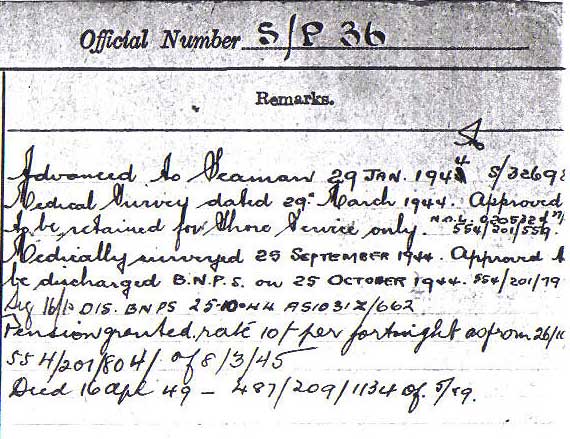 Official Number S/P 36
Remarks.
Advanced to Seaman 29 JAN. 1944 S/3269
Medical Survey dated 29 March 1944. Approved
to be retained for Shore Service only. 554/201/559.
Medically surveyed 25 SEPTEMBER 1944. Approved t
be discharged B.N.P.S. on 25 OCTOBER 1944. 554/201/79
Sig 16/1 DIS. BNPS 25-10-44 AS1031Z/662
Pension granted rate 10/- per fortnight as from 26/10
554/201/804/ of 8/3/45
Died 16 Apl 49 – 487/209/1134 of 5/49.